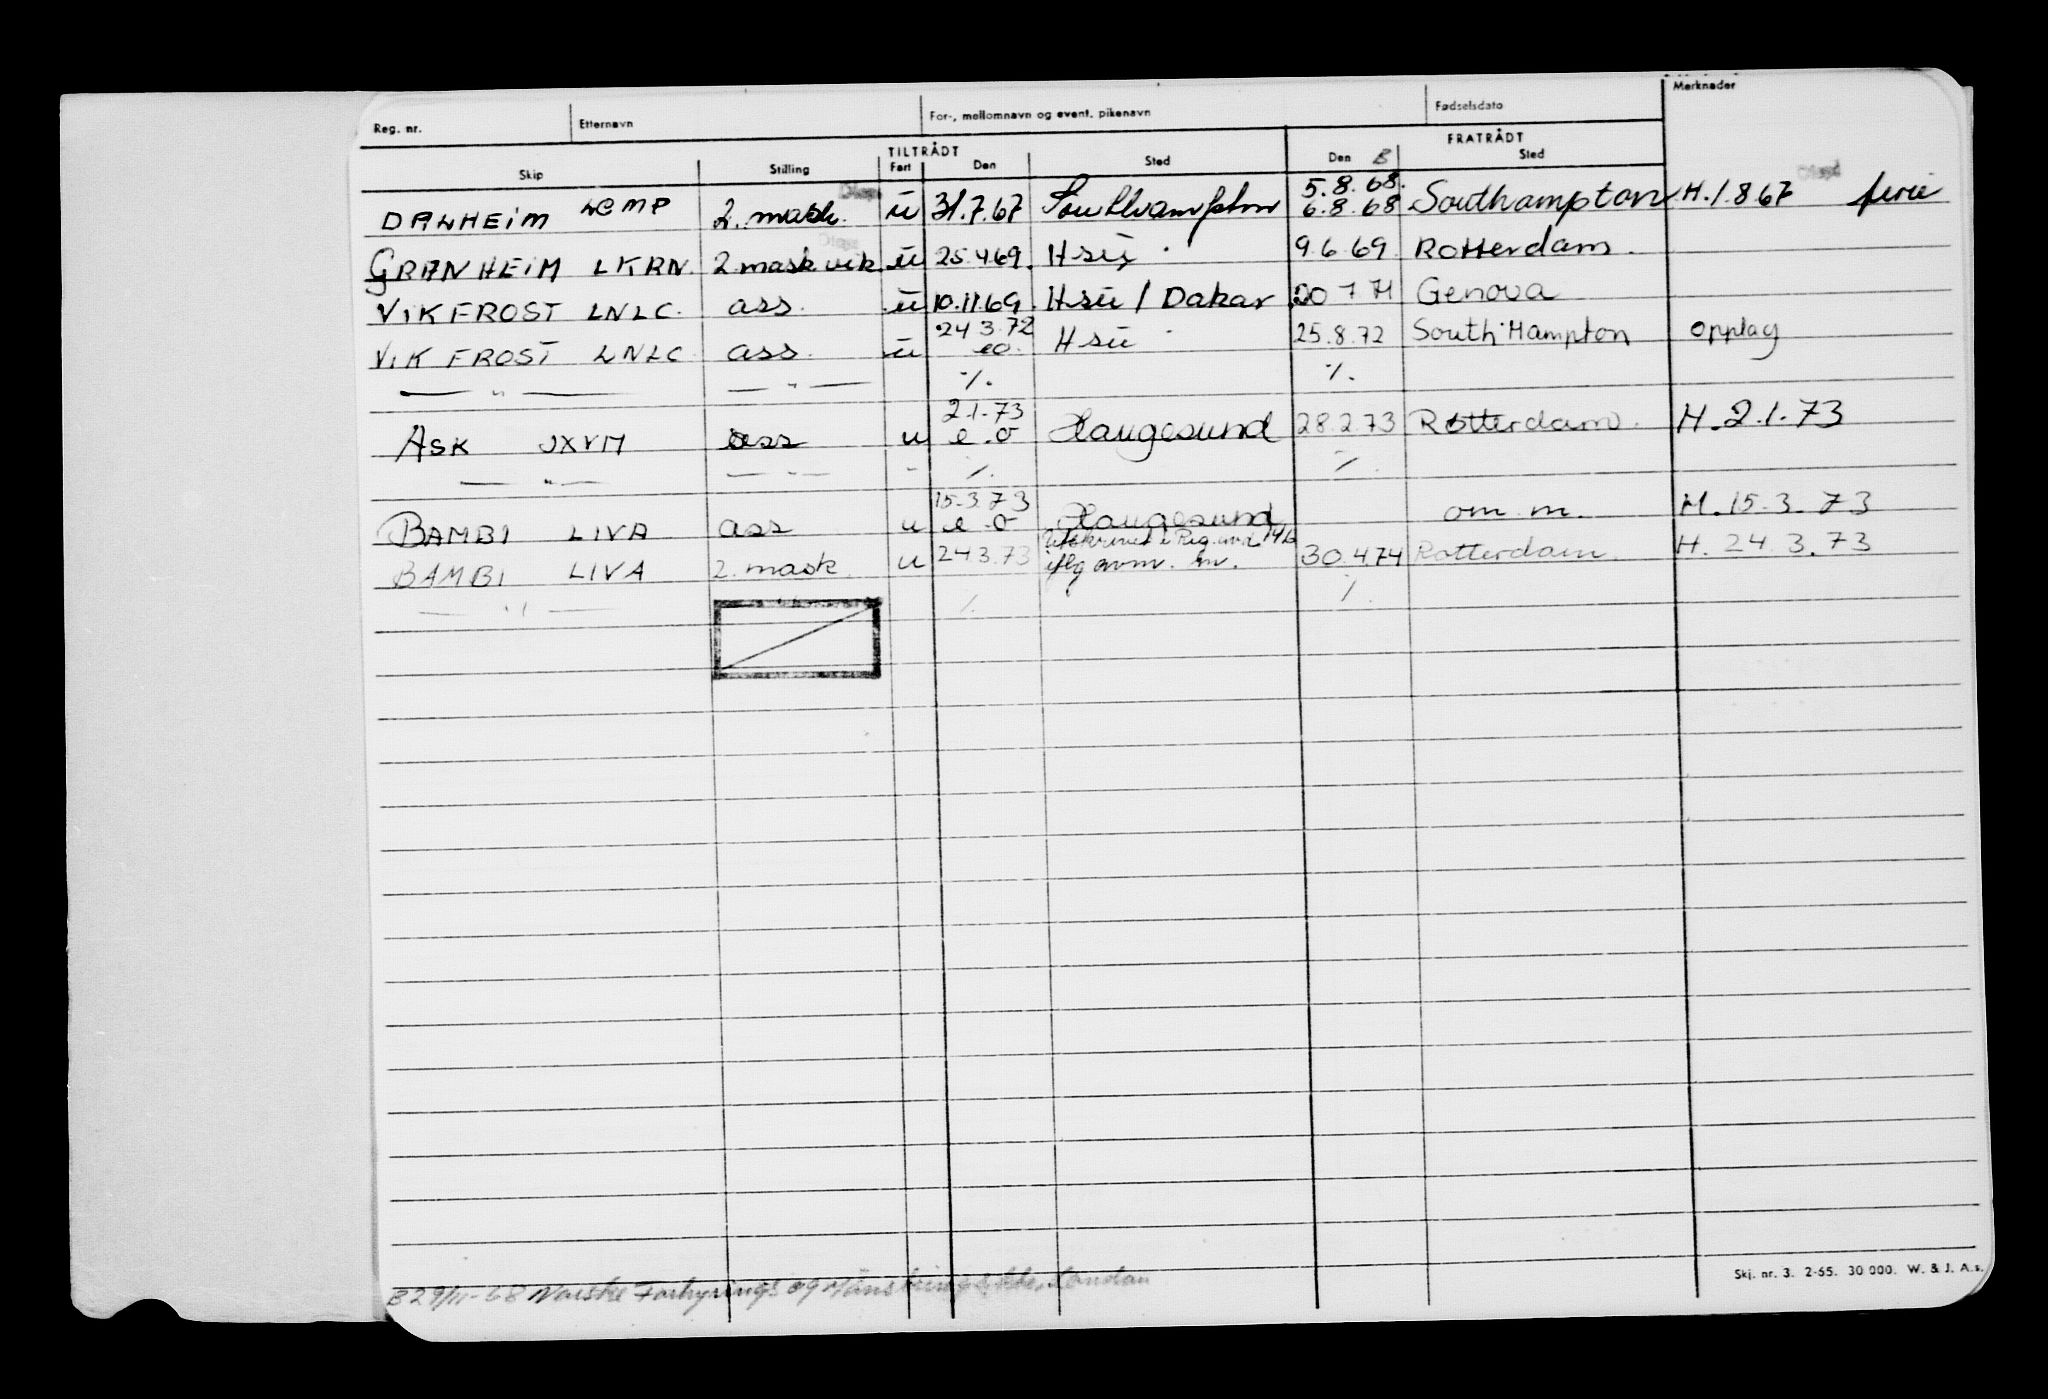 Reg. nr. Etternavn For-, mellomnavn og event. pikenavn Fødselsdato Merknader
TILTRÅDT FRATRÅDT
Skip Stilling Fart Den Sted Den B Sted
DANHEIM LCMP 2. mask. u 31.7.67 Southampton 5.8.68. 6.8.68 Southampton H.1.8.67 ferie
GRANHEIM LKRN. 2 mask vik. u 25.4.69. Hsu 9.6.69. Rotterdam.
VIKFROST LNLC. ass. u 10.11.69. Hsu / Dakar 20 7 71 Genova
VIK FROST LNLC ass. u 24.3.72 eo. Hsu 25.8.72 South.Hampton opplag
— " — — " — %. %.
ASK JXVM ass u 2.1.73 e.o Haugesund 28.2.73 Rotterdam. H. 2.1.73
— " — — " — - %. %.
BAMBI LIVA ass u 15.3.73 e.o Haugesund om m. H. 15.3.73
BAMBI LIVA 2. mask. u 24.3.73 iflg 30.4.74 Rotterdam. H. 24.3.73
— " — %. %.
B 29/11-68 Norske Forhyrings og Mønstrings London
Skj. nr. 3. 2-65. 30 000. W. & J. A.s.